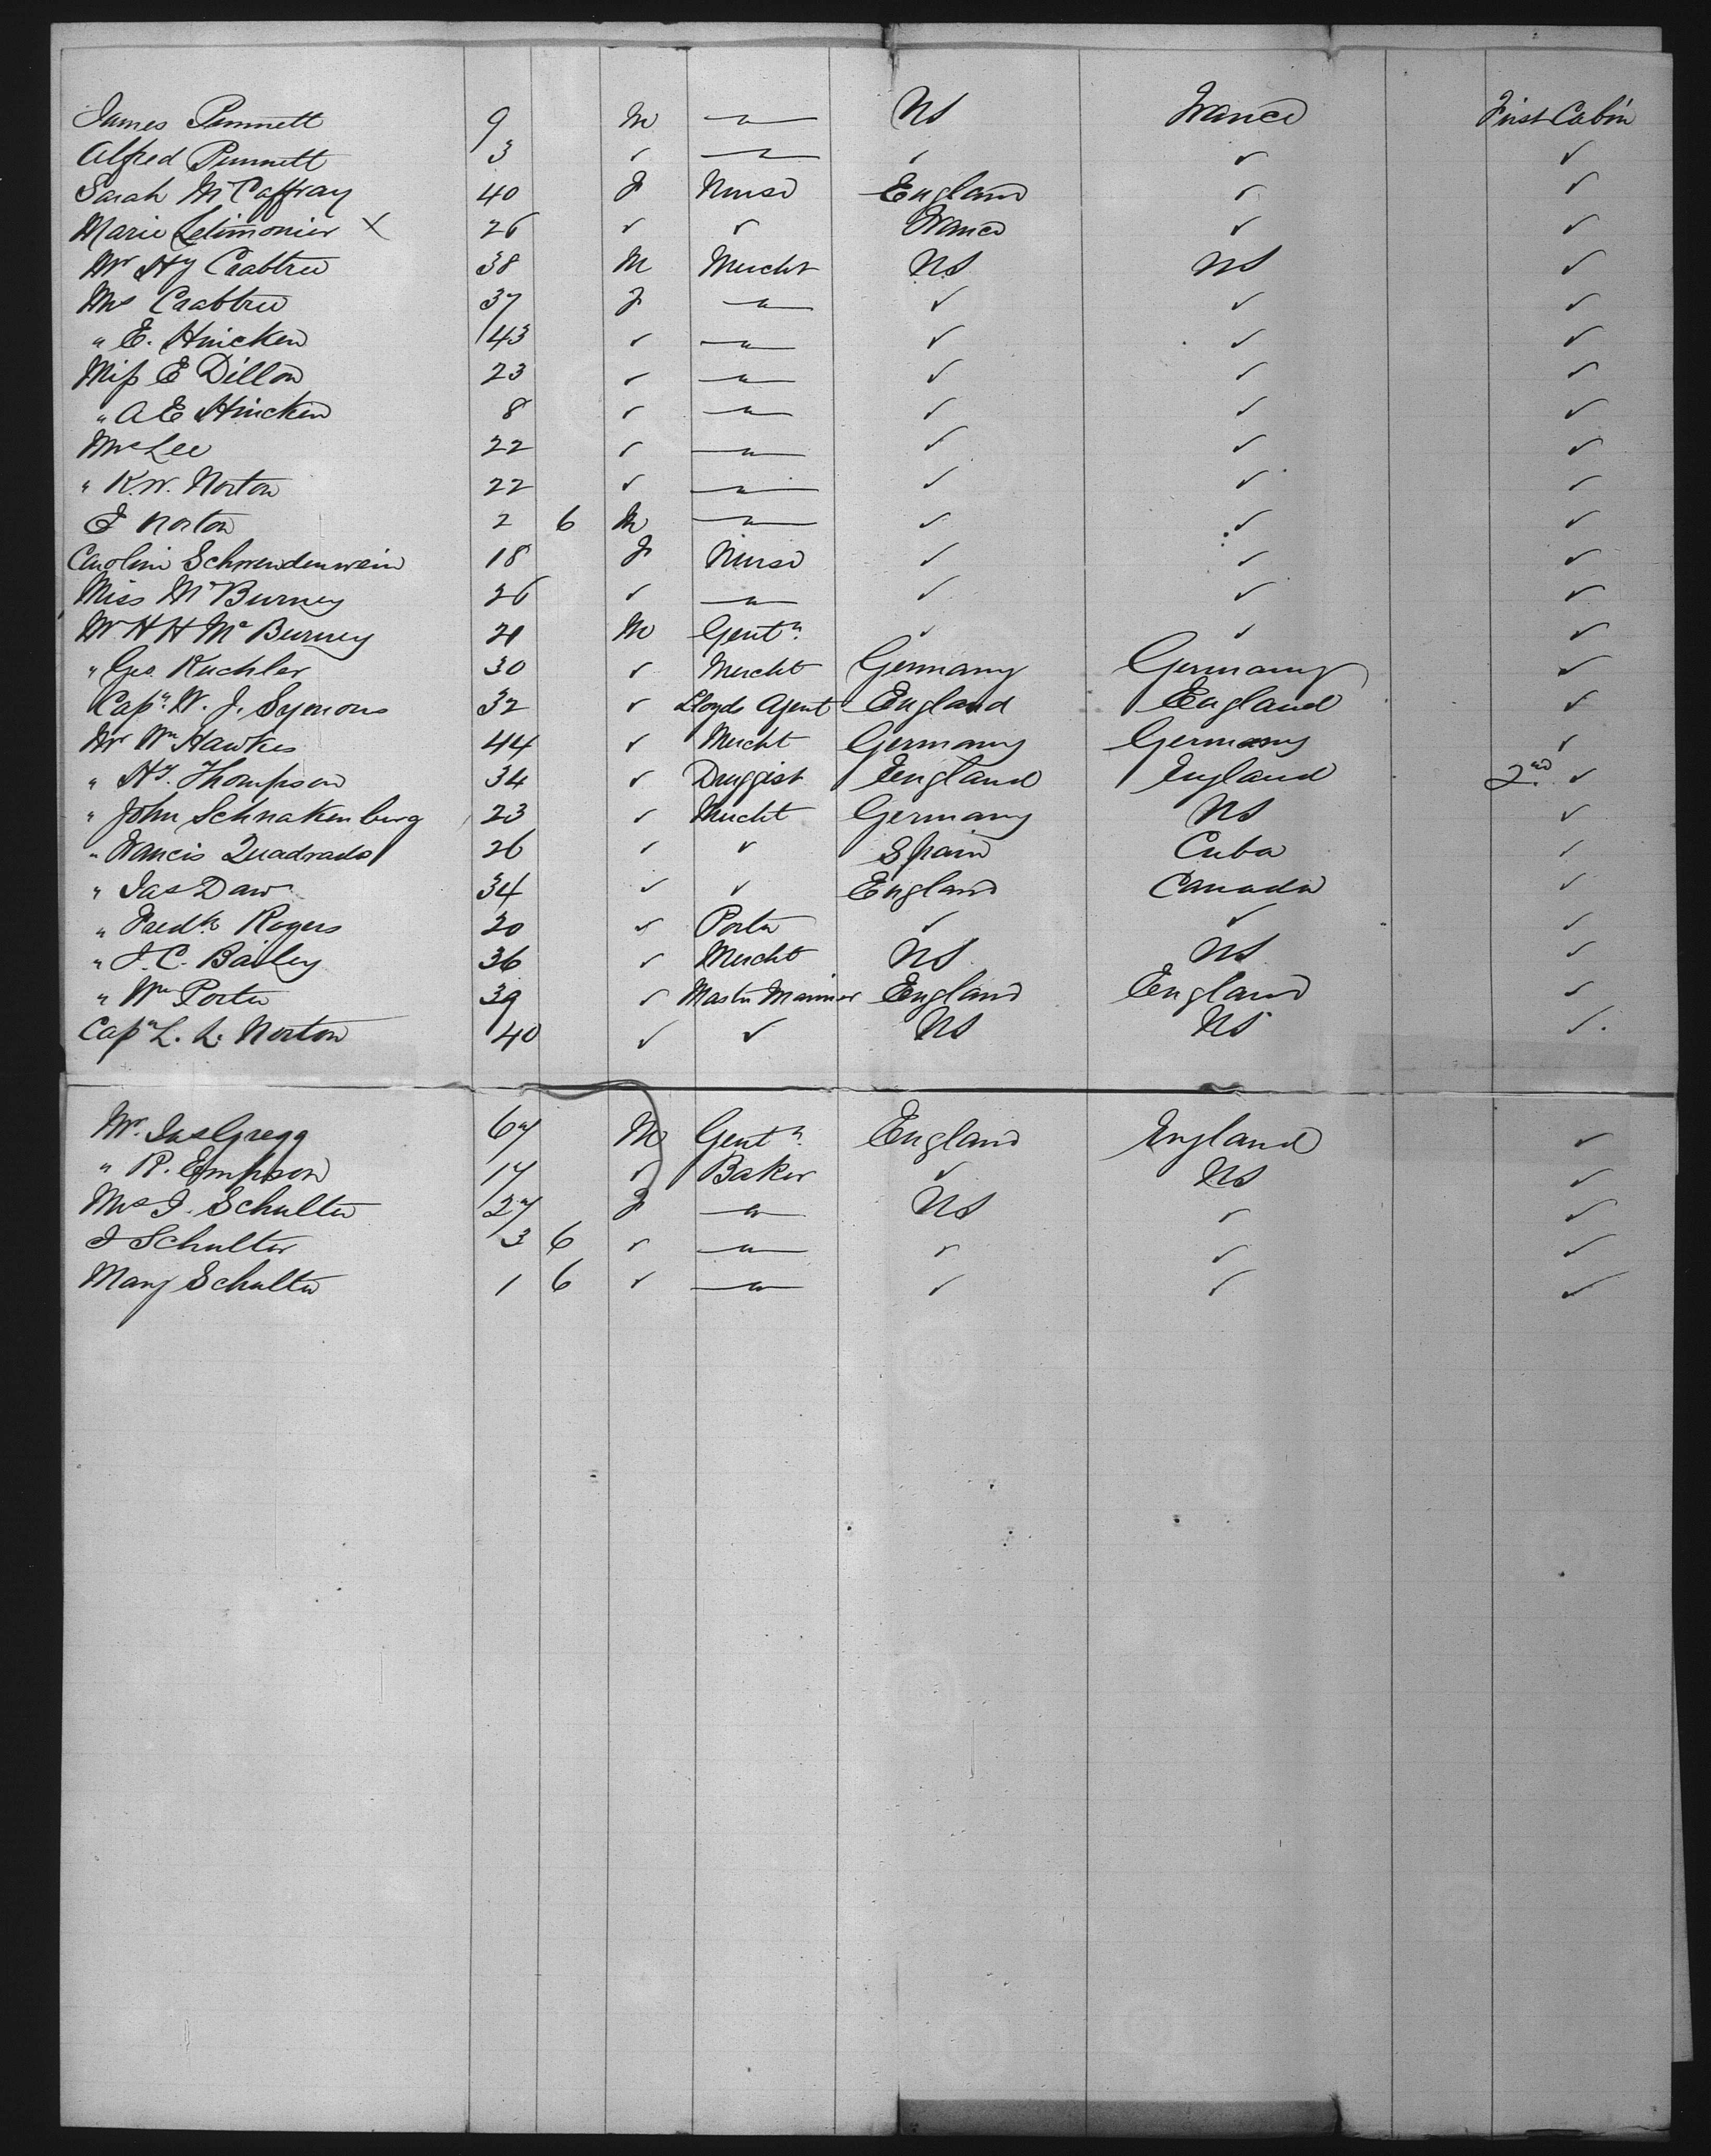 James Punnett 9 M — " — US France First Cabin
Alfred Punnett 3 ✓ — " — ✓ ✓ ✓
Sarah McCaffray 40 F Nurse England ✓ ✓
Marie Letimonier X 26 ✓ ✓ France ✓ ✓
Mr Hy Crabtree 38 M Mercht US US ✓
Mrs Crabtree 37 F — " — ✓ ✓ ✓
" E. Hincken 43 ✓ — " — ✓ ✓ ✓
Miss E Dillon 23 ✓ — " — ✓ ✓ ✓
" A E Hincken 8 ✓ — " — ✓ ✓ ✓
Mrs Lee 22 ✓ — " — ✓ ✓ ✓
" K.W. Norton 22 ✓ — " — ✓ ✓ ✓
Norton 2 6 M — " — ✓ ✓ ✓
Caroline Schwendenwein 18 F Nurse ✓ ✓ ✓
Miss McBurney 26 ✓ — " — ✓ ✓ ✓
Mr H H McBurney 21 M Gentn ✓ ✓ ✓
" Geo. Kuchler 30 ✓ Mercht Germany Germany ✓
Capn W. J. Symons 32 ✓ Lloyds Agent England England ✓
Mr Wm Hawkes 44 ✓ Mercht Germany Germany ✓
" Hy. Thompson 34 ✓ Druggist England England 2nd ✓
" John Schnakenburg 23 ✓ Mercht Germany US ✓
" Francis Quadrado 26 ✓ ✓ Spain Cuba ✓
" Jas Daw 34 ✓ ✓ England Canada ✓
" Fredk Rogers 20 ✓ Porter ✓ ✓ ✓
" J. C. Bailey 36 ✓ Mercht US US ✓
" Wm Porter 39 ✓ Master Mariner England England ✓
Capn L. L. Norton 40 ✓ ✓ US US ✓
Mr. Jas Gregg 67 M Gentn England England ✓
" R. Empson 17 ✓ Baker ✓ US ✓
Mrs J. Schulter 27 F — " — US ✓ ✓
J Schulter 3 6 ✓ — " — ✓ ✓ ✓
Mary Schulter 1 6 ✓ — " — ✓ ✓ ✓